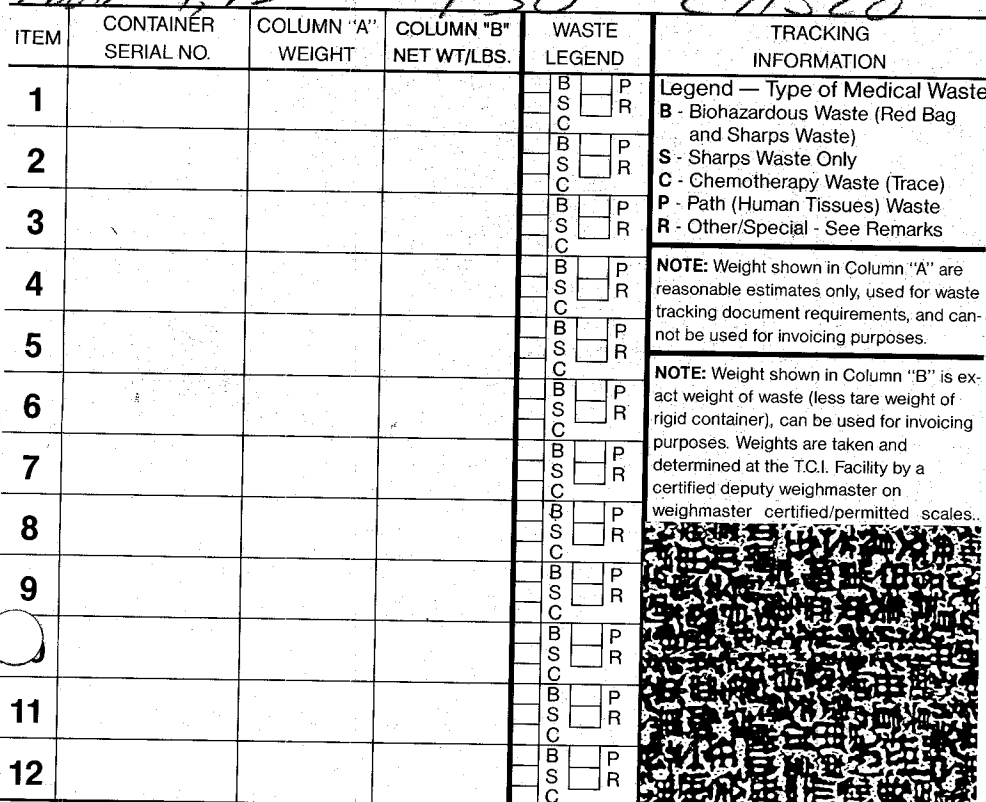 ITEM
CONTAINER
SERIAL NO.
COLUMN "A"
WEIGHT
COLUMN "B"
NET WT/LBS.
WASTE
LEGEND
TRACKING
INFORMATION
1
B P
S R
C
2
B P
S R
C
3
B P
S R
C
4
B P
S R
C
5
B P
S R
C
6
B P
S R
C
7
B P
S R
C
8
B P
S R
C
9
B P
S R
C
B P
S R
C
11
B P
S R
C
12
B P
S R
C
Legend — Type of Medical Waste
B - Biohazardous Waste (Red Bag
and Sharps Waste)
S - Sharps Waste Only
C - Chemotherapy Waste (Trace)
P - Path (Human Tissues) Waste
R - Other/Special - See Remarks
NOTE: Weight shown in Column "A" are
reasonable estimates only, used for waste
tracking document requirements, and can-
not be used for invoicing purposes.
NOTE: Weight shown in Column "B" is ex-
act weight of waste (less tare weight of
rigid container), can be used for invoicing
purposes. Weights are taken and
determined at the T.C.I. Facility by a
certified deputy weighmaster on
weighmaster certified/permitted scales..